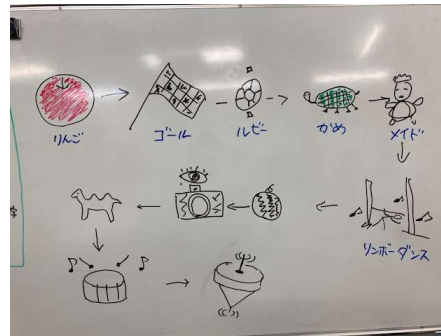 りんご
ゴール
ルビー
かめ
メイド
リンボーダンス